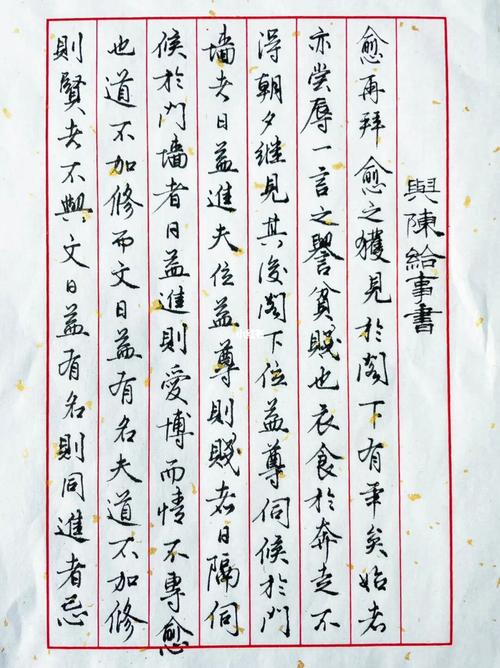 與陳給事書
愈再拜愈之獲見於閣下有年矣始者
亦嘗辱一言之譽貧賤也衣食於奔走不
得朝夕继見其後閣下位益尊伺候於門
墻者日益進夫位益尊則賤者日隔伺
候於門墻者日益進則愛博而情不專愈
也道不加修而文日益有名夫道不加修
則賢者不與文日益有名則同進者忌